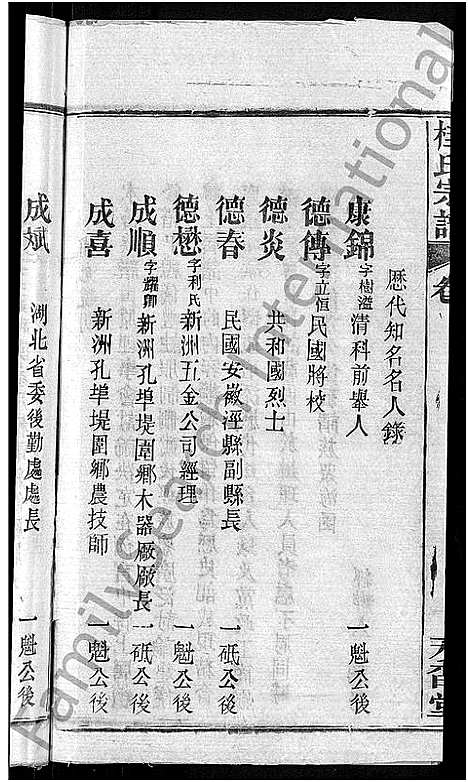 桂氏宗譜
歷代知名名人錄
康錦 字樹滋 清科前舉人 一魁公後
德傳 字立恒 民國將校
德炎 共和國烈士
德春 民國安徽涇縣副縣長 一砥公後
德懋 字利民 新洲五金公司經理 一魁公後
成順 字耀卿 新洲孔埠堤圍鄉木器厰厰長 一砥公後
成喜 新洲孔埠堤圍鄉農技師 一魁公後
成斌 湖北省委後勤處處長 一魁公後
FamilySearch International